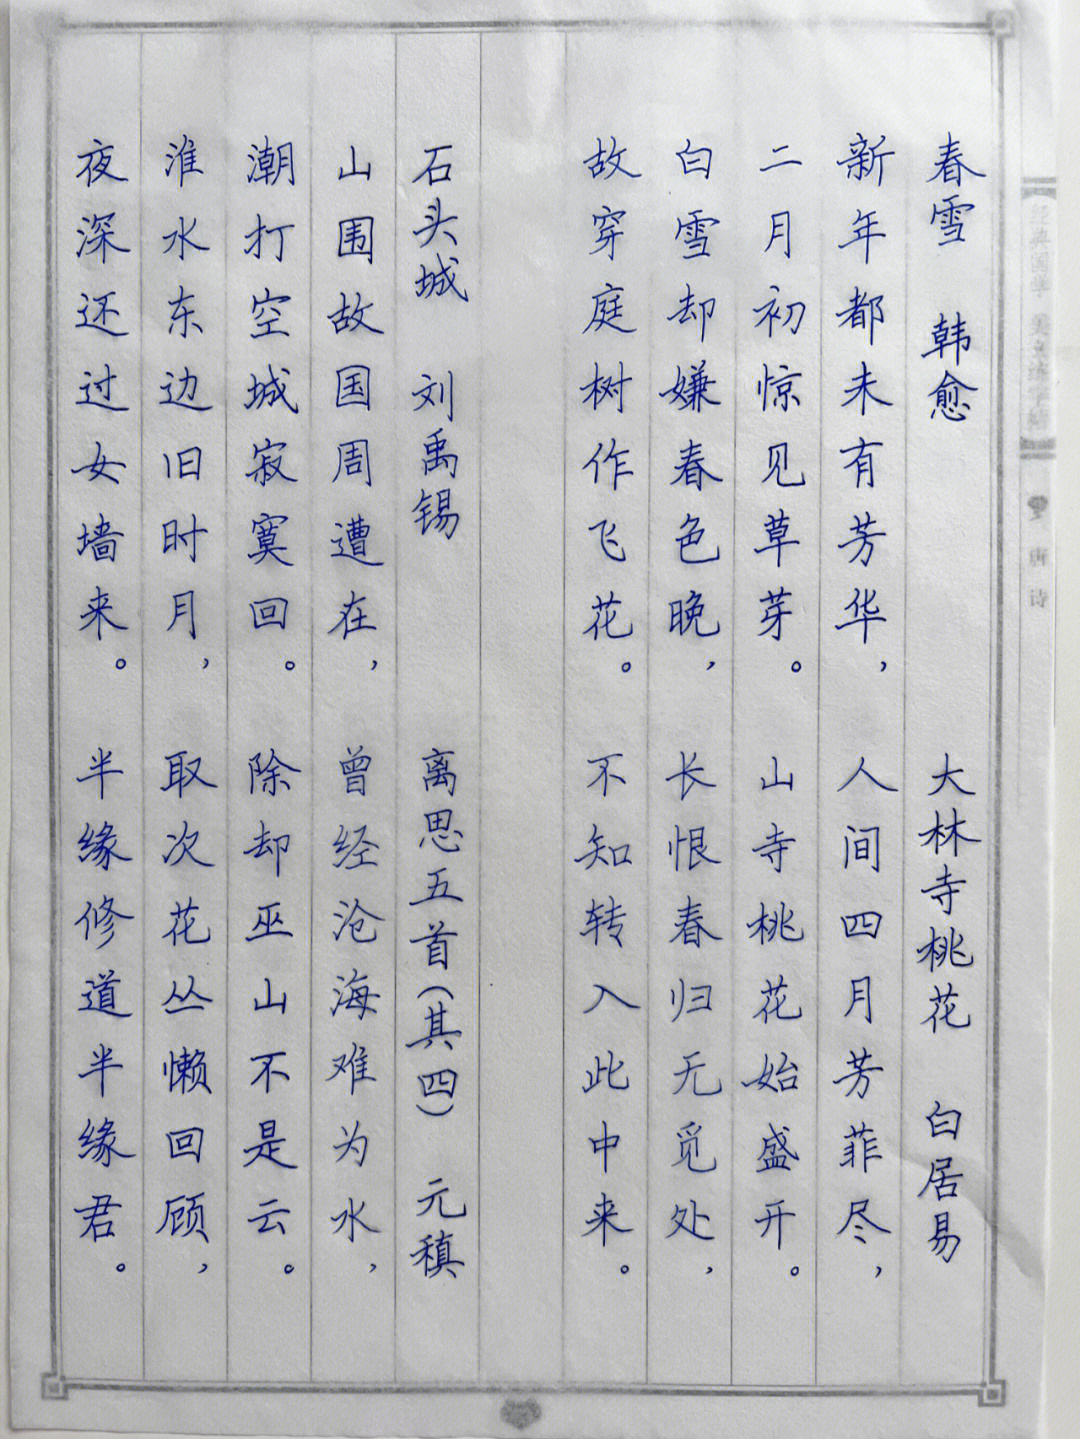 春雪 韩愈
新年都未有芳华，
二月初惊见草芽。
白雪却嫌春色晚，
故穿庭树作飞花。
大林寺桃花 白居易
人间四月芳菲尽，
山寺桃花始盛开。
长恨春归无觅处，
不知转入此中来。
石头城 刘禹锡
山围故国周遭在，
潮打空城寂寞回。
淮水东边旧时月，
夜深还过女墙来。
离思五首（其四） 元稹
曾经沧海难为水，
除却巫山不是云。
取次花丛懒回顾，
半缘修道半缘君。
唐诗